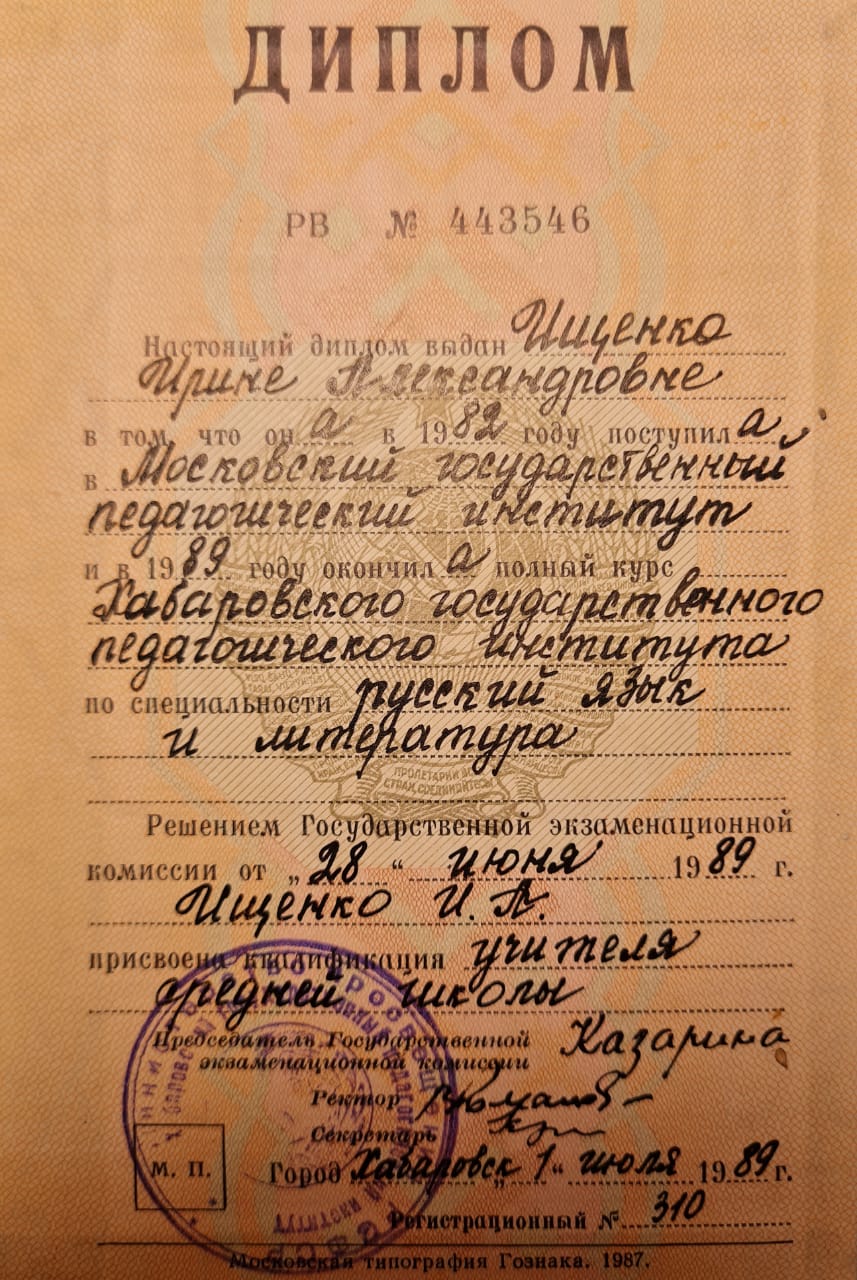 ДИПЛОМ
РВ № 443546
Настоящий диплом выдан Ищенко
Ирине Александровне
в том, что она в 1982 году поступила
в Московский государственный
педагогический институт
и в 1989 году окончила полный курс
Хабаровского государственного
педагогического института
по специальности русский язык
и литература
Решением Государственной экзаменационной
комиссии от „28“ июня 1989 г.
Ищенко И. А.
присвоена квалификация учителя
средней школы
Председатель Государственной Казарина
экзаменационной комиссии
Ректор
Секретарь
М. П. Город Хабаровск „1“ июля 1989 г.
Регистрационный № 310
Московская типография Гознака. 1987.
ПРОЛЕТАРИИ
СТРАН, СОЕДИНЯЙТЕСЬ